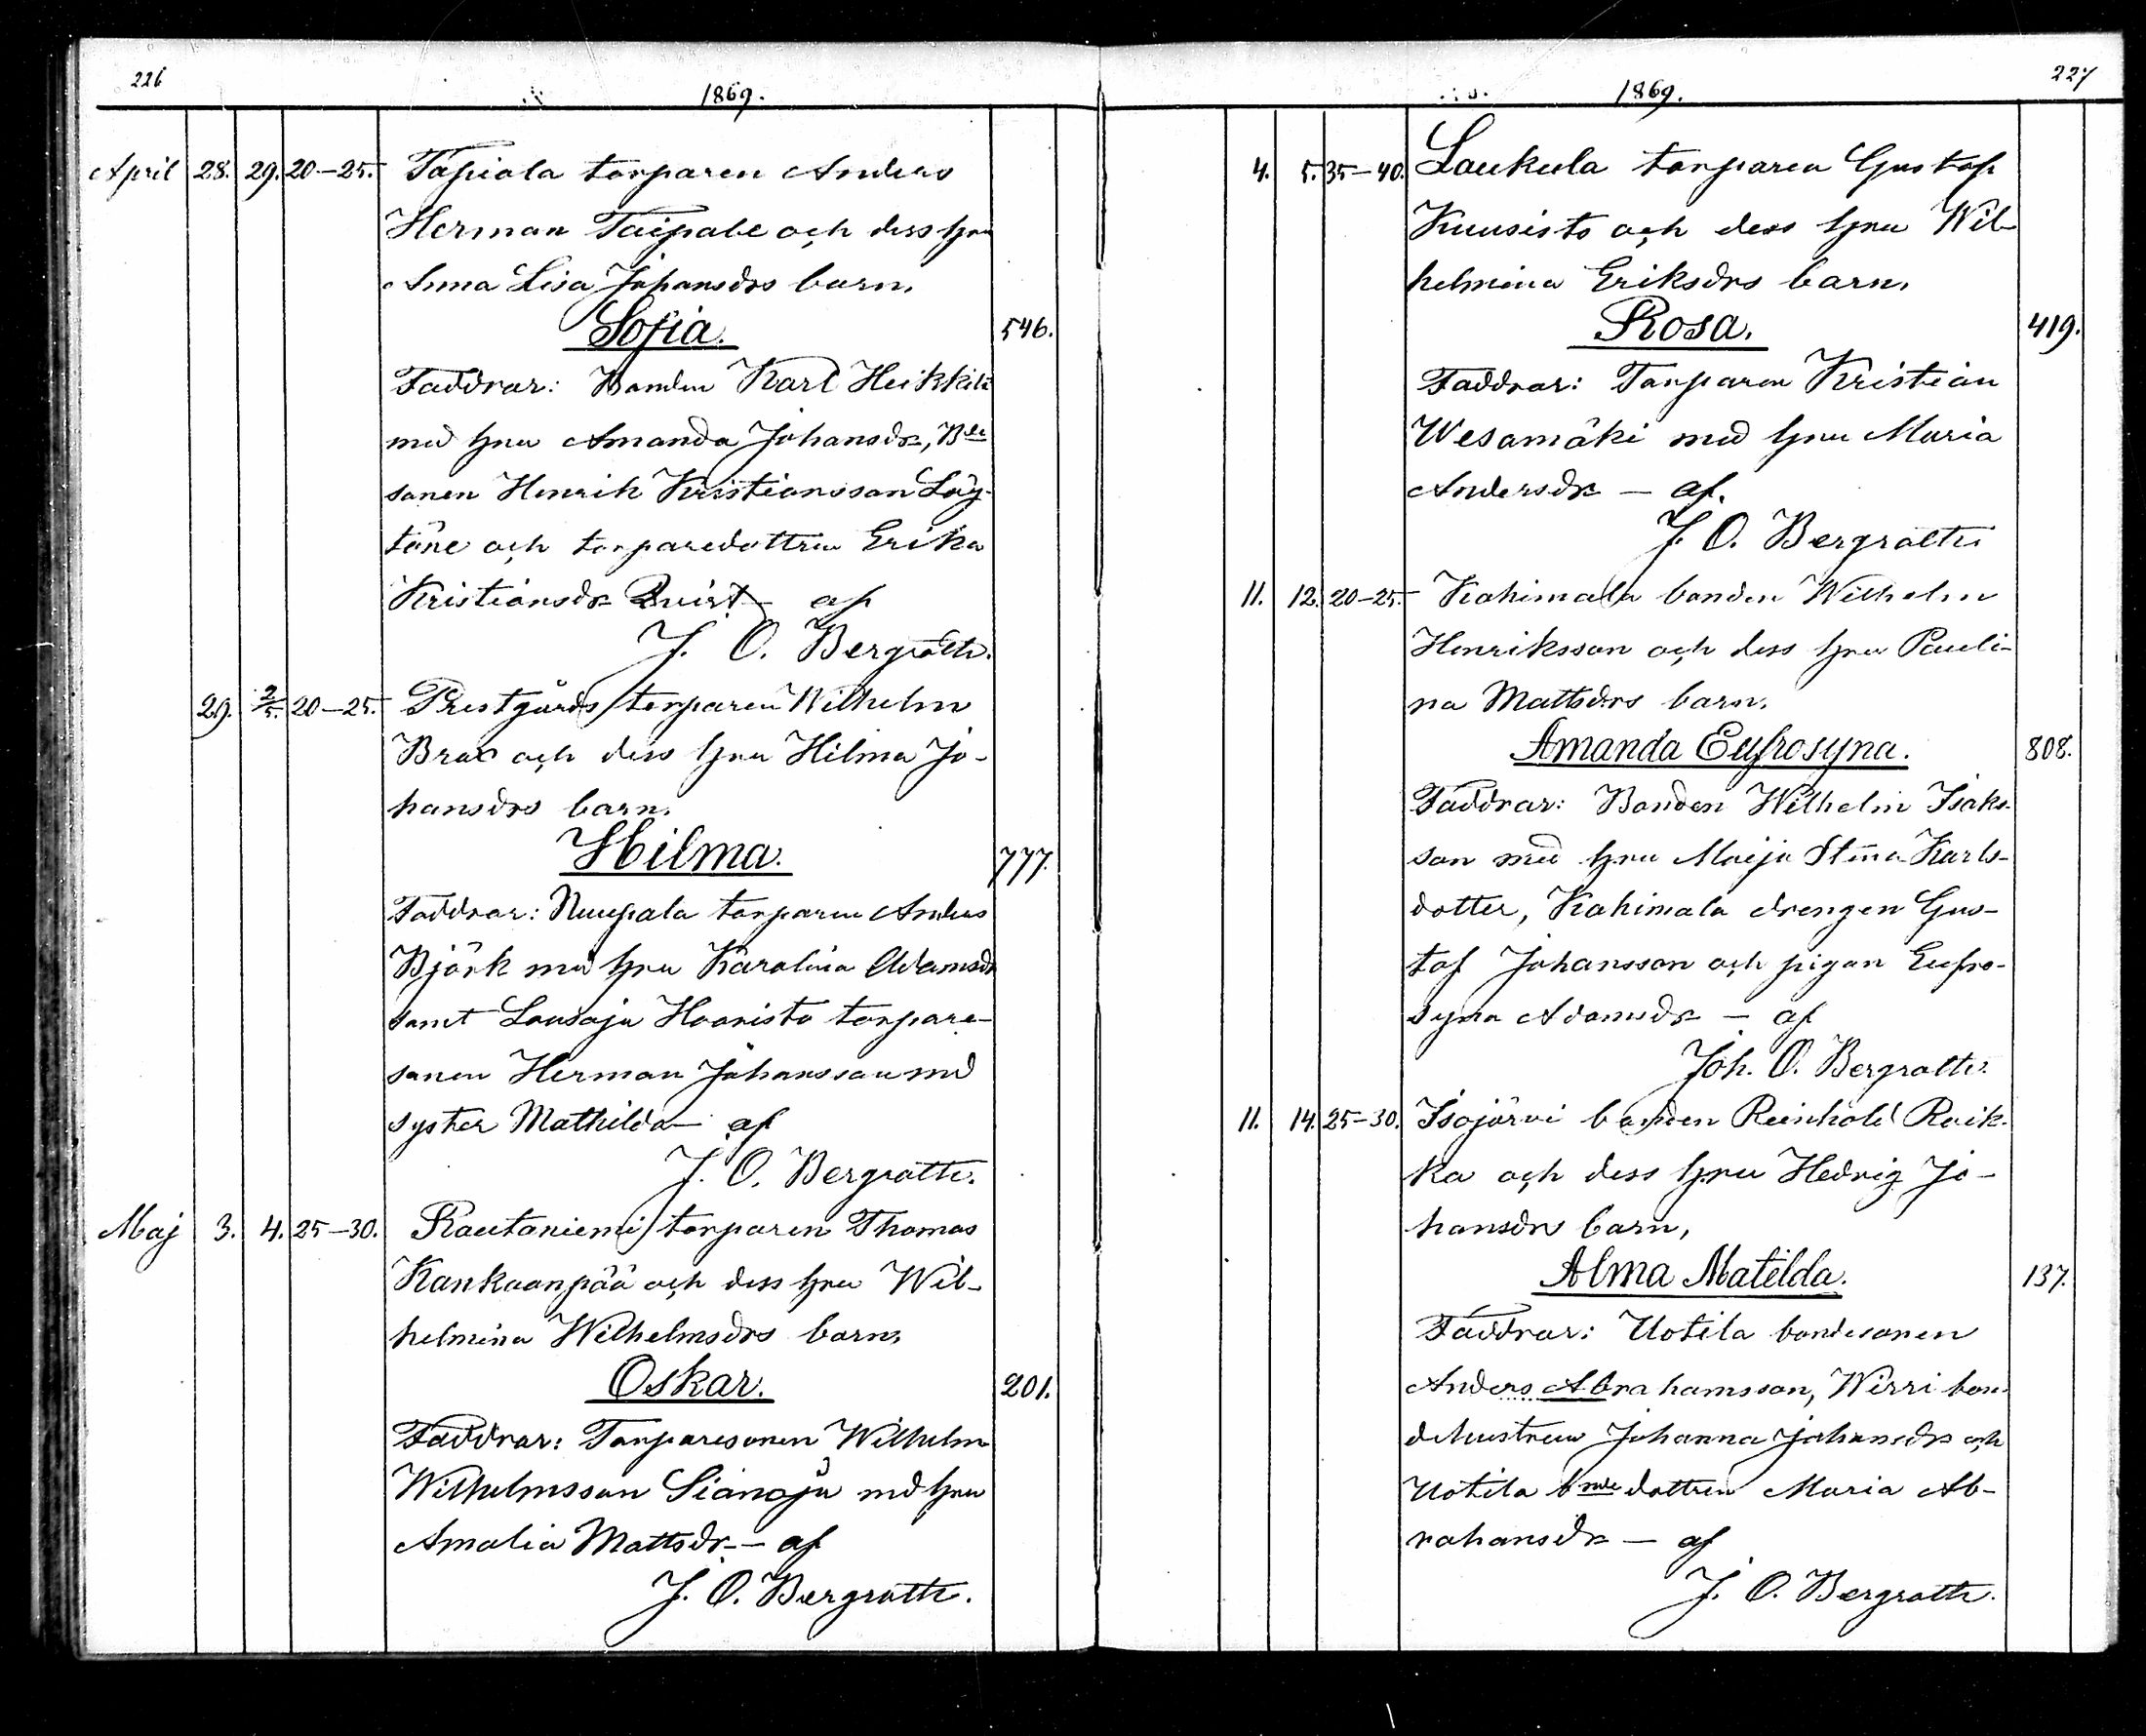 226
1869.
April 28. 29. 20-25. Tapiola torparen Anders
Herman Taipale och dess hru
Anna Lisa Johansdrs barn,
Sofia. 546.
Faddrar: Bonden Karl Heikkilä
med hru Amanda Johansdr, Bde
sonen Henrik Kristiansson Löy-
töne och torparedottren Erika
Kristiansdr Qvist - af
J. O. Bergroth.
29. 2/5. 20-25. Prestgårds torparen Wilhelm
Brax och dess hru Hilma Jo-
hansdrs barn,
Hilma. 777.
Faddrar: Nuupala torparen Anders
Björk med hru Karolina Adamsdr
samt Sousaju Haaristo torpare-
sonen Herman Johansson med
syster Mathilda - af
J. O. Bergroth.
Maj 3. 4. 25-30. Rautaniemi torparen Thomas
Kankaanpää och dess hru Wil-
helmina Wilhelmsdrs barn,
Oskar. 201.
Faddrar: Torparesonen Wilhelm
Wilhelmsson Sianoja med hru
Amalia Mattsdr - af
J. O. Bergroth.
227
1869.
4. 5. 35-40. Laukula torparen Gustaf
Kuusisto och dess hru Wil-
helmina Eriksdrs barn,
Rosa. 419.
Faddrar: Torparen Kristian
Wesamäki med hru Maria
Andersdr - af.
J. O. Bergroth
11. 12. 20-25. Kahimala bonden Wilhelm
Henriksson och dess hru Pauli-
na Mattsdrs barn,
Amanda Eufrosyna. 808.
Faddrar: Bonden Wilhelm Isaks-
son med hru Maija Stina Karls-
dotter, Kahimala drengen Gus-
taf Johansson och pigan Eufro-
syna Adamsdr - af
Joh. O. Bergroth.
11. 14. 25-30. Isojärvi bonden Reinhold Raik-
ka och dess hru Hedvig Jo-
hansdrs barn,
Alma Matilda. 137.
Faddrar: Uotila bondesonen
Anders Abrahamsson, Wirri bon-
dehustrun Johanna Johansdr och
Uotila bnde dottren Maria Ab-
rahamsdr - af
J. O. Bergroth.